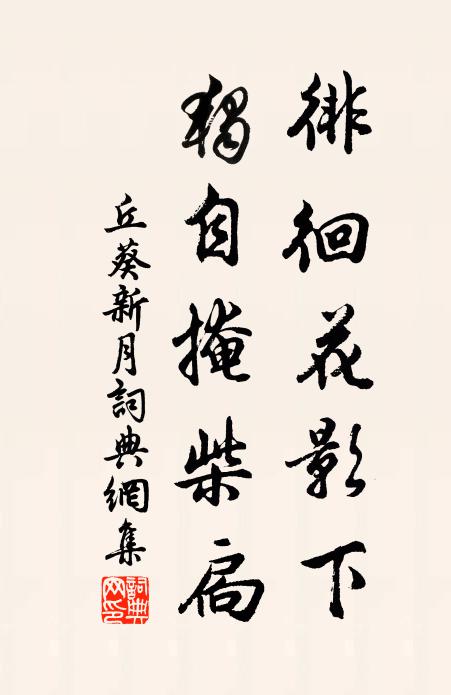 徘徊花影下
獨自掩柴扃
丘葵新月詞典網集
詞典網印